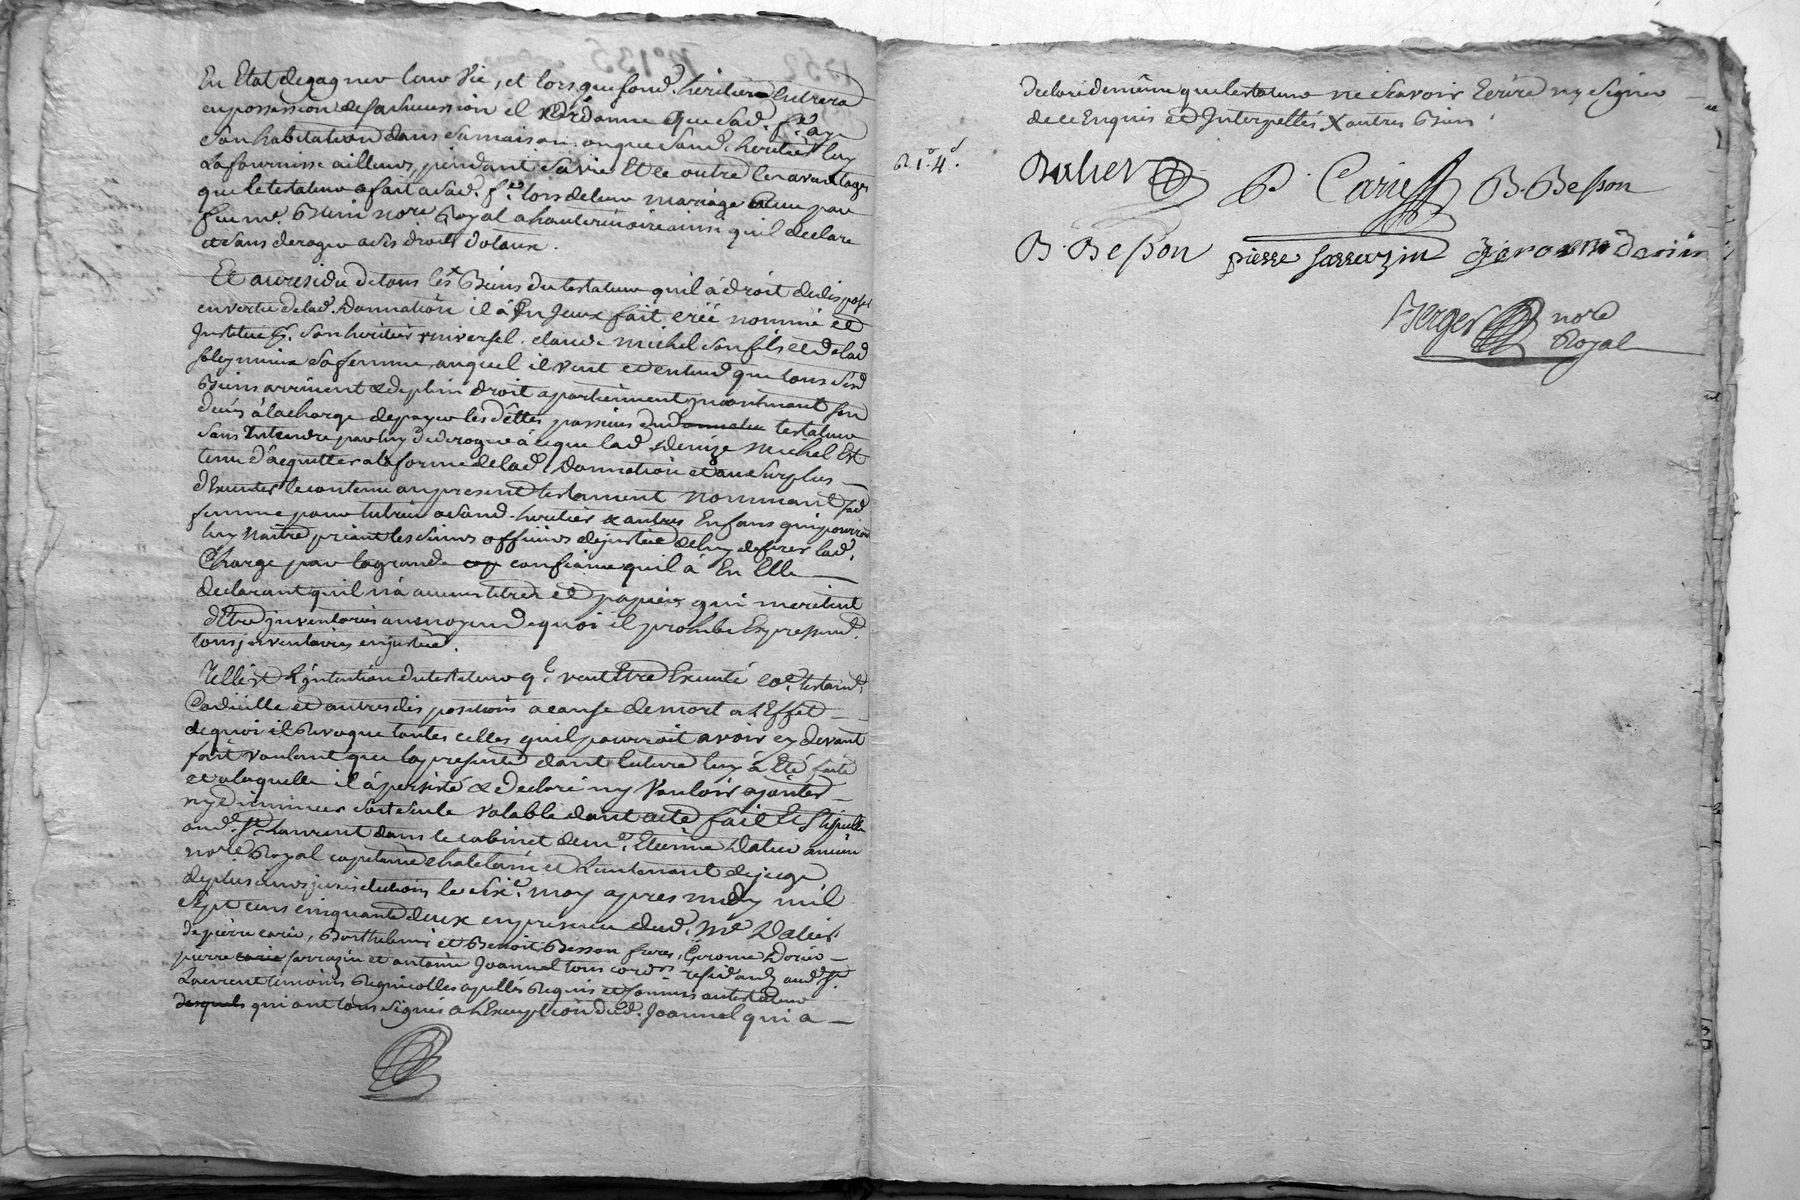 En Etat de gagner leur vie, et lors que sond. heritier entrera
en possession de sa succession il ordonne que lad. f.e aye
son habitation dans sa maison ou que sond. heritier luy
La fournisse ailleurs, pendant sa vie Et ce outre les avantages
que le testateur a fait a sad. f.e lors de leur mariage Reçu par
feu me. nore Royal a hauterivoire ainsi qu'il declare
et sans deroger a ses droits dotaux.
Et au residu de tous les Biens du testateur qu'il à droit de disposer
en vertu de lad. Donnation il à fait créé nommé et
Institué son heritier universel. claude michel son fils et de lad
sa femme, auquel il veut et entend que tous sesd
Biens arrivent & de plein droit apartiennent moyennant son
deces à la charge de payer les dettes passives dud donnateur testateur
sans Entendre par luy deroger à ce que lad. Denize Michel Est
tenu d'acquitter a la forme de lad. Donnation et au surplus
d'executer le contenu au present testament nommant sad
femme pour tutrice a sond. heritier & autres Enfans qui pourront
luy Naitre priant les sieurs officiers de justice de luy deferer lad.
Charge par la grande con confiance qu'il à En Elle
declarant qu'il n'à aucuns titres et papiers qui meritent
d'Etre inventoriés au moyen de quoi il prohibe Expressemt.
tous inventaires en justice.
Telle est L'intention du testateur q.l veut Etre Executé co.e testamt.
Codicille et autres dispositions a cause de mort a L'Effet
de quoi il Revoque toutes celles qu'il pourroit avoir cy devant
fait voulant que la presente dont lecture luy à Eté faite
et a laquelle il à persisté & declaré ny vouloir ajouter
ny diminuer soit seule valable dont acte fait Et Stipullé
aud. St. Laurent dans le cabinet de m.e Etienne Dalier ancien
nore. Royal capitaine chatelain et Lieutenant de juge
de plusieurs jurisdictions le six.e may apres midy mil
sept cens cinquante deux en presence dud. Me Dalier.
de pierre carié, Barthelemi et Benoit Besson freres, Gerome Dorier
pierre carié sarrazin et antoine Joannel tous cord.rs residands aud. St.
Laurent temoins Regnicolles apellés Requis et fournis au testateur
desquels qui ont tous signés a L'Exception dud. Joannel qui a
declaré de même que testateur ne sçavoir Ecrire ny signer
de ce Enquis et Interpellés X autres Biens
R 1.4.
Dalier P. Carié B. Besson
B. Besson pierre sarrazin
Berger nore
Royal